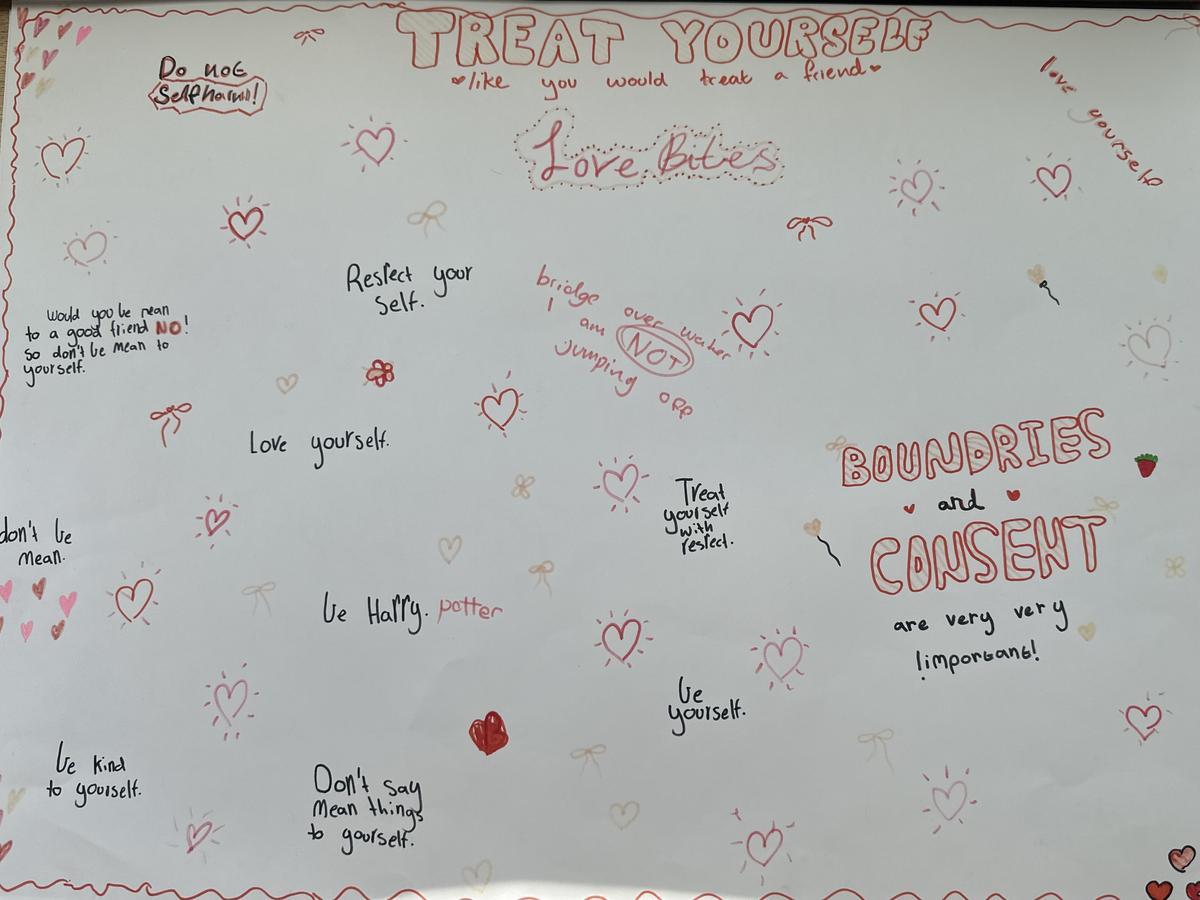 TREAT YOURSELF
like you would treat a friend
Do not
Selfharm!
love yourself
Love Bites
Respect your
self.
bridge over water
I am NOT
jumping off
Would you be mean
to a good friend NO!
so don't be mean to
yourself.
Love yourself.
BOUNDRIES
and
CONSENT
are very very
!important!
Treat
yourself
with
respect.
don't be
mean.
be Harry. potter
be
yourself.
be kind
to yourself.
Don't say
mean things
to yourself.